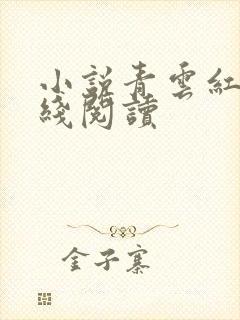 小說青雲紅
綫閱讀
金子寨